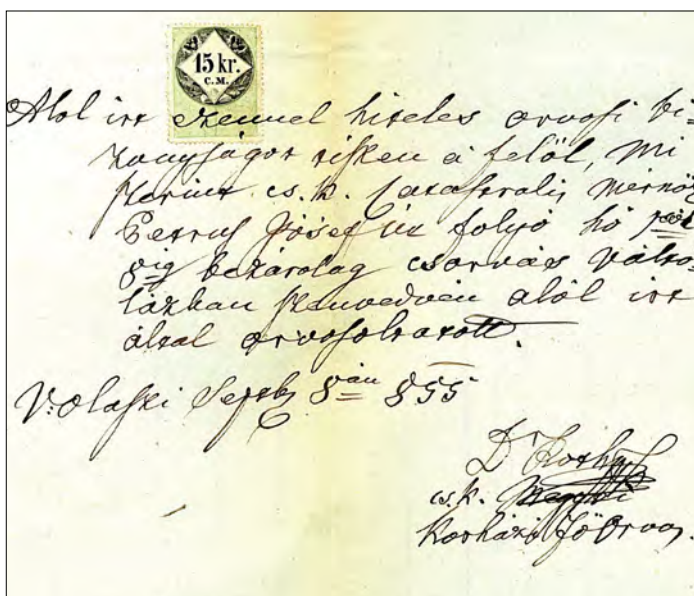 15 kr.
C.M.
Alol irt ezennel hiteles orvosi bi=
zonyságot teszen a felöl, mi
szerint cs. k. Catastralis mérnök
Petrus Jósef úr folyó hó
8ig bezárolag csorvás válto
lázban szenvedvén alól irt
által orvosoltatott.
V: Olaszi Septb 8án 855
Dr
cs. k.
korházi főorvos.